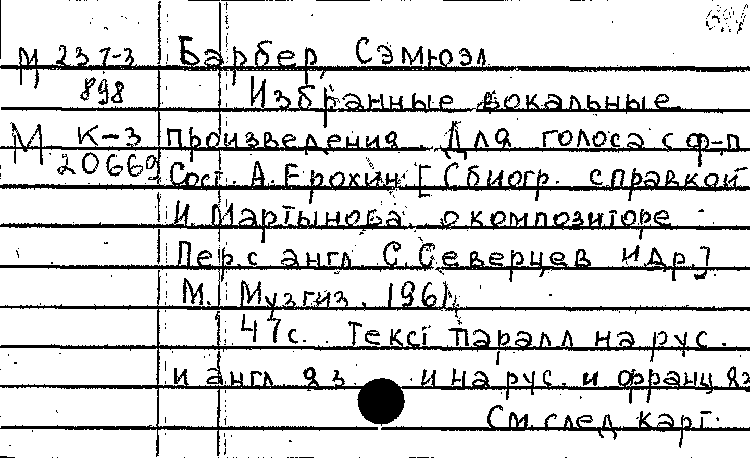 М 237-3 Барбер, Сэмюэл
898 Избранные вокальные
М К-3 произведения. Для голоса с ф-п
20669 Сост. А. Ерохин [С биогр. справкой
И. Мартынова о композиторе
Пер. с англ С. Северцев и др.]
М. Музгиз. 1961
47 с. Текст паралл на рус.
и англ яз и на рус. и франц яз
См. след карт.